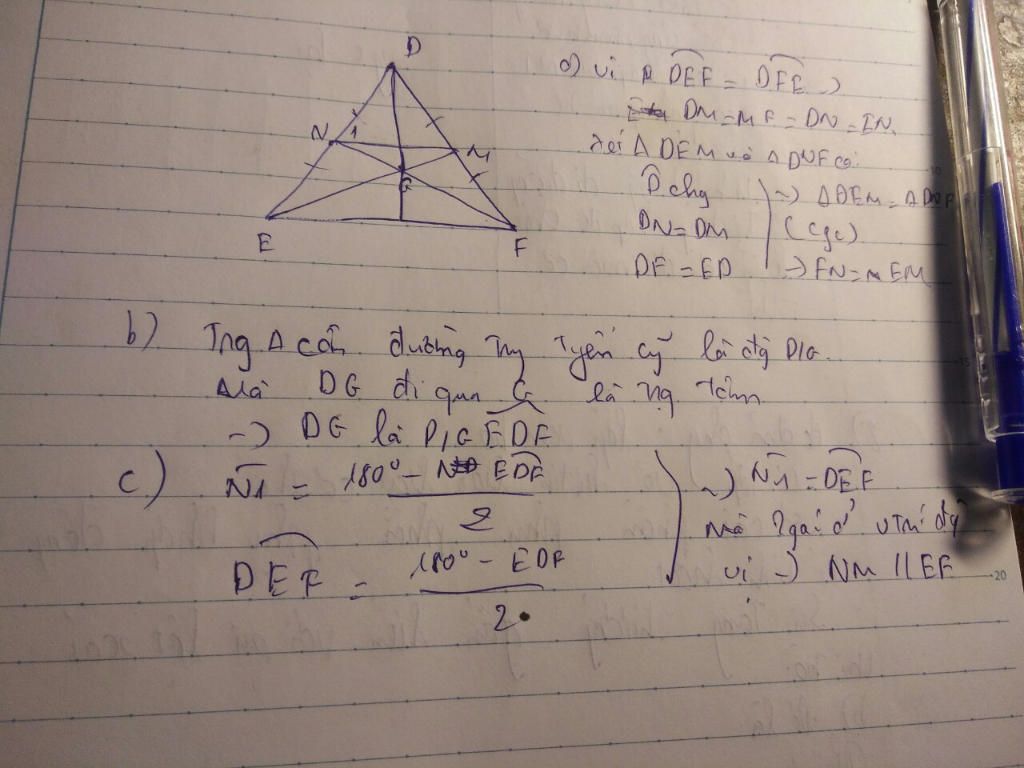 D
N 1 M
G
E F
a) Vì DEF = DFE →
DM = MF = DN = EN
Xét Δ DEM và Δ DNF có:
D chg
DN = DM
DF = ED
→ Δ DEM = Δ DNF
(cgc)
→ FN = EM
b) Trg Δ cân đường Try Tyến cũ là đg P/G.
Mà DG đi qua G là Tg Tâm
→ DG là P/G EDF
c) N1 = 180° - EDF
2
DEF = 180° - EDF
2
→ N1 = DEF
mà 2 góc ở vTrí đg
vị → NM // EF
20